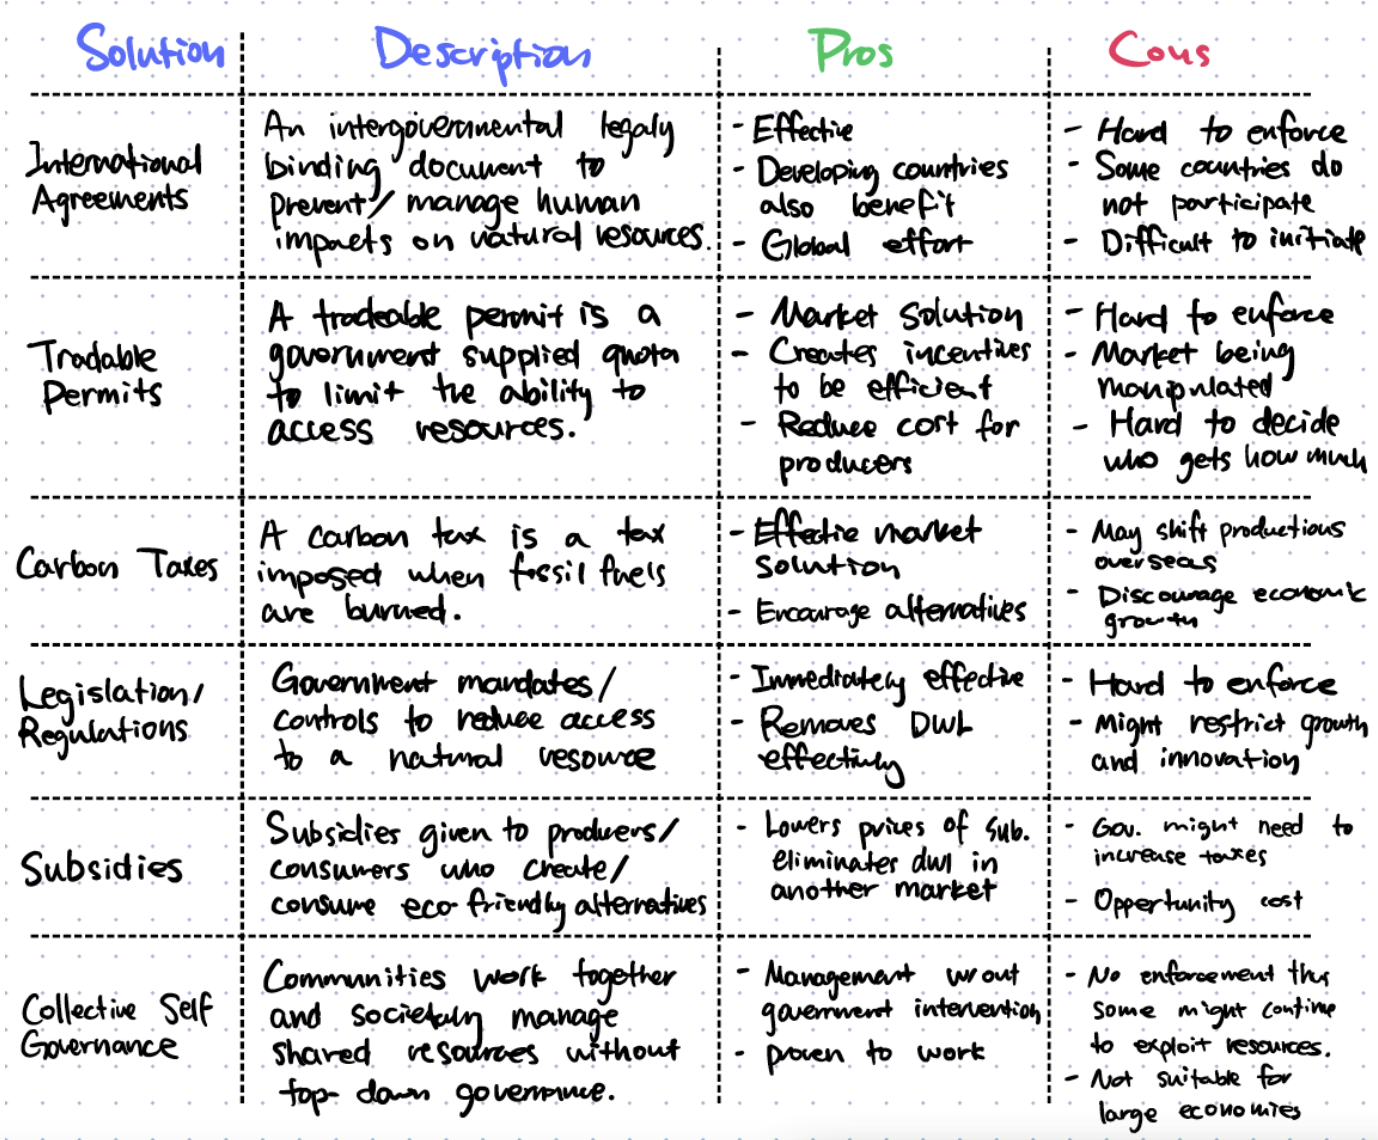 Solution Description Pros Cons
International
Agreements
An intergovernmental legaly
binding document to
prevent/ manage human
impacts on natural resources.
- Effective
- Developing countries
also benefit
- Global effort
- Hard to enforce
- Some countries do
not participate
- Difficult to initiate
Tradable
Permits
A tradeable permit is a
government supplied quota
to limit the ability to
access resources.
- Market Solution
- Creates incentives
to be efficient
- Reduce cost for
producers
- Hard to enforce
- Market being
manipulated
- Hard to decide
who gets how much
Carbon Taxes
A carbon tax is a tax
imposed when fossil fuels
are burned.
- Effectie market
solution
- Encourage alternatives
- May shift productions
overseas
- Discourage economic
growth
Legislation/
Regulations
Government mandates/
controls to reduce access
to a natural resource
- Immediately effective
- Removes DWL
effectively
- Hard to enforce
- Might restrict growth
and innovation
Subsidies
Subsidies given to producers/
consumers who create/
consume eco-friendly alternatives
- Lowers prices of sub.
eliminates dwl in
another market
- Gov. might need to
increase taxes
- Oppertunity cost
Collective Self
Governance
Communities work together
and societaly manage
shared resources without
top-down governance.
- Management w/out
government intervention
- proven to work
- No enforcement thus
some might contine
to exploit resources.
- Not suitable for
large economies